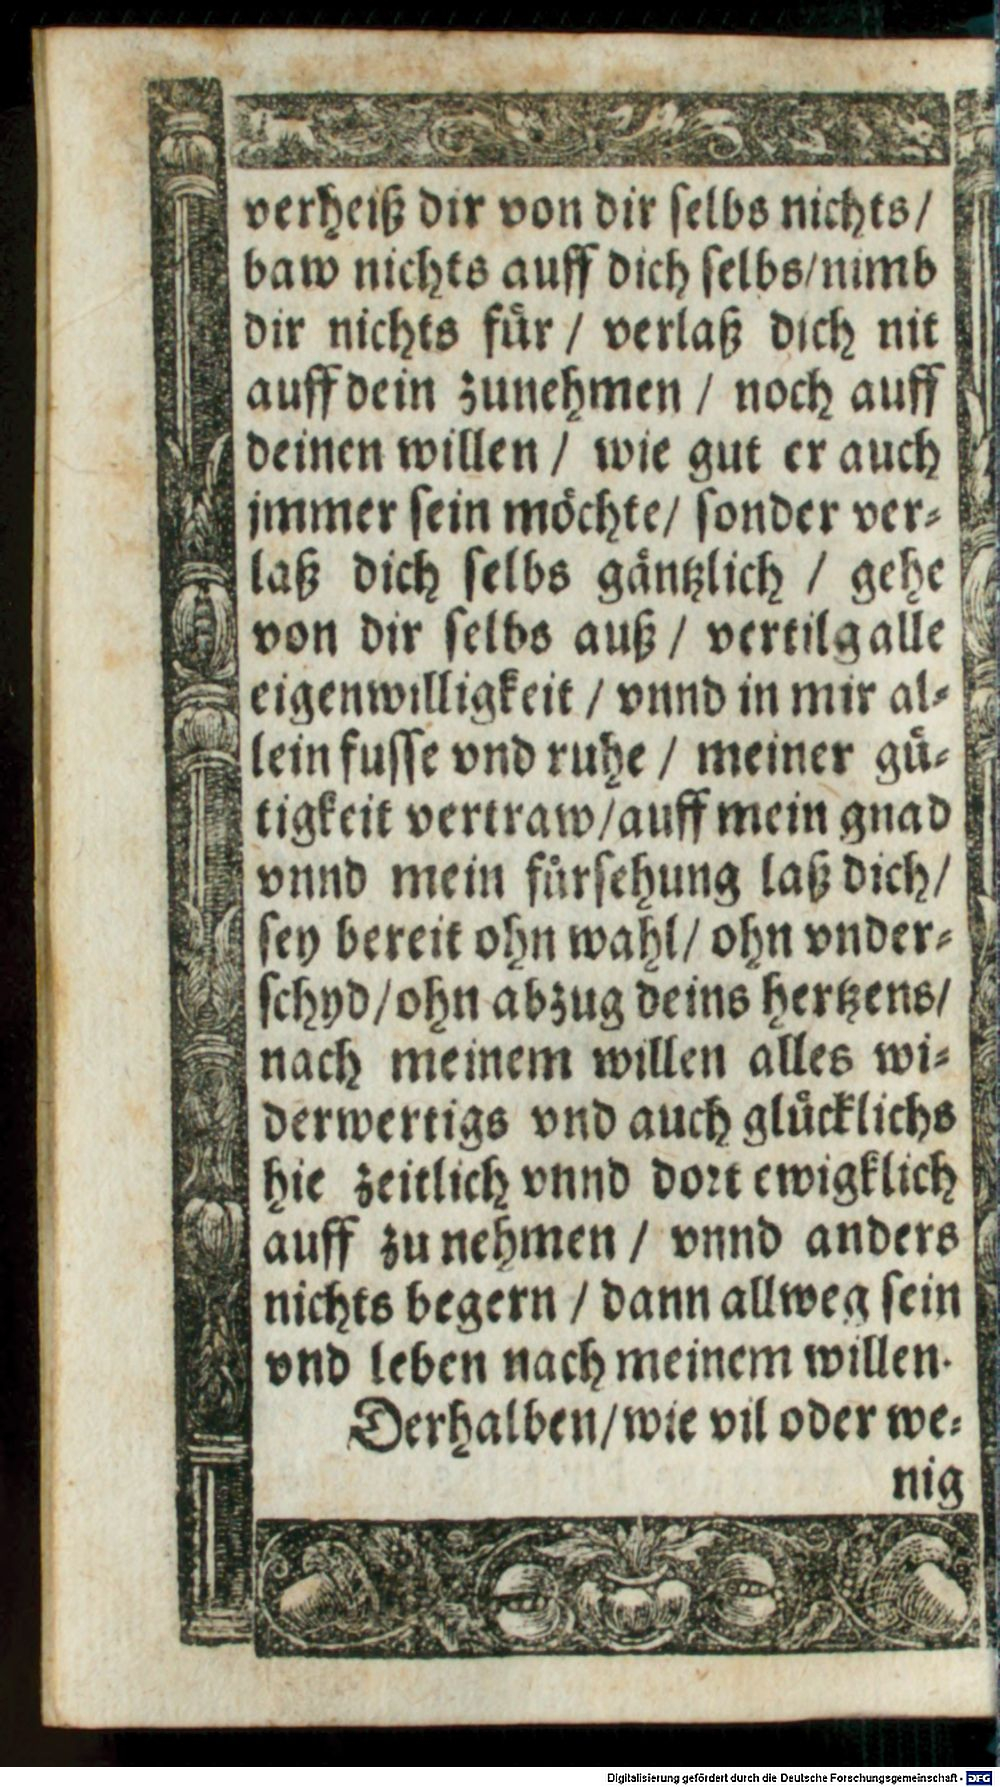 verheiß dir von dir selbs nichts/
baw nichts auff dich selbs/nimb
dir nichts für / verlaß dich nit
auff dein zunehmen / noch auff
deinen willen / wie gut er auch
jmmer sein möchte/ sonder ver-
laß dich selbs gäntzlich / gehe
von dir selbs auß / vertilg alle
eigenwilligkeit / vnnd in mir al-
lein fusse vnd ruhe / meiner gü-
tigkeit vertraw/auff mein gnad
vnnd mein fürsehung laß dich/
sey bereit ohn wahl/ ohn vnder-
schyd/ohn abzug deins hertzens/
nach meinem willen alles wi-
derwertigs vnd auch glücklichs
hie zeitlich vnnd dort ewigklich
auff zu nehmen / vnnd anders
nichts begern / dann allweg sein
vnd leben nach meinem willen.
Derhalben/wie vil oder we-
nig
Digitalisierung gefördert durch die Deutsche Forschungsgemeinschaft - DFG